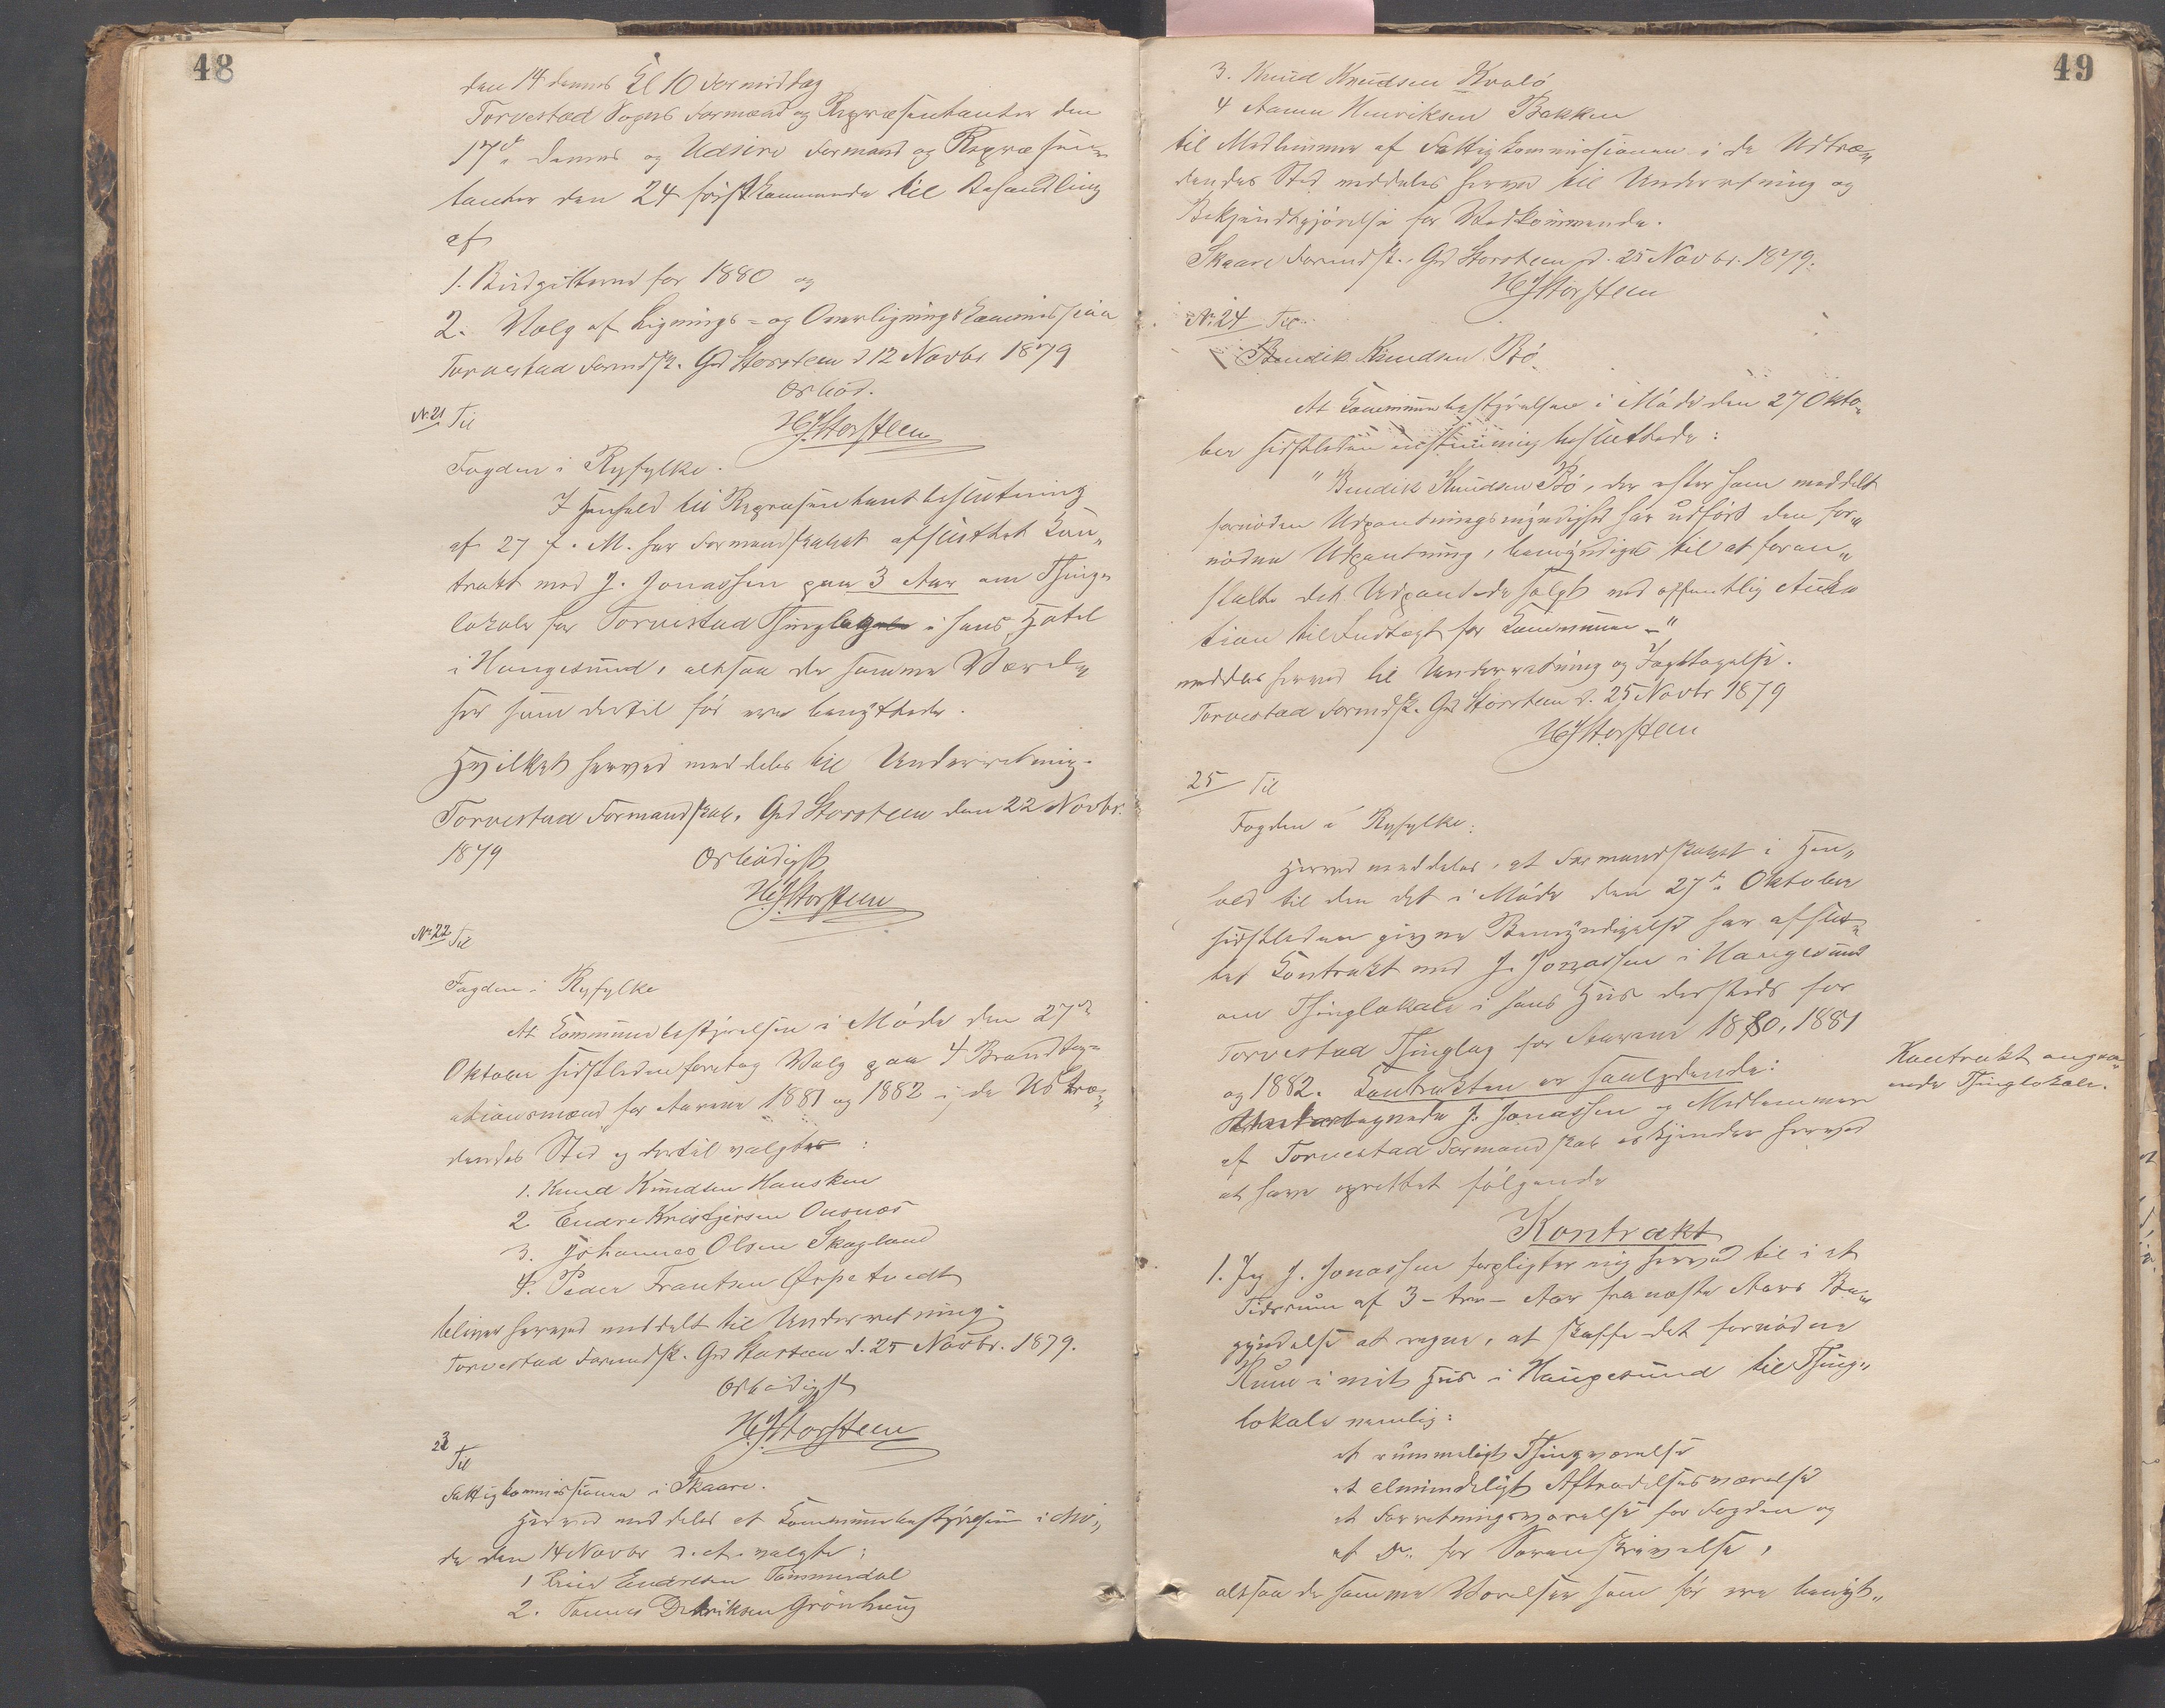 48
den 14 dennes Kl 10 Formiddag
Torvestad Sogns Formænd og Repræsentanter den
17de dennes og Udsire Formænd og Repræsen„
tanter den 24 førstkommende til Behandling
af
1. Budgetterne for 1880 og
2. Valg af Lignings- og Overligningskommission
Torvestad Formdsk. Grd Storsteen d 12 Novbr 1879
Ærbød.
HJStorsteen
No. 21 Til
Fogden i Ryfylke.
I Henhold til Repræsentantbeslutning
af 27 f. M. har Formandskabet afsluttet Kon„
trakt med J. Jonassen paa 3 Aar om Thing„
lokale for Torvestad Thinglag i hans Hotel
i Haugesund, altsaa de samme Værel„
ser som dertil før ere benyttede.
Hvilket herved meddeles til Underretning.
Torvestad Formandskab, Grd Storsteen den 22 Novbr.
1879
Ærbødigst
HJStorsteen
No. 22 Til
Fogden i Ryfylke
At Kommunebestyrelsen i Møde den 27de
Oktober sidstleden foretog Valg paa 4 Brandtax„
ationsmænd for Aarene 1881 og 1882 i de Udtræ„
dendes Sted og dertil valgtes:
1. Knud Knudsen Hausken
2. Endre Kristjersen Onsnæs
3. Johannes Olsen Skagland
4. Peder Frantsen Ørpetvedt
bliver herved meddelt til Underretning.
Torvestad Formdsk. Grd Storsteen d. 25 Novbr. 1879.
Ærbødigst
HJStorsteen
23
Til
Fattigkommissionen i Skaare.
Herved meddeles at Kommunebestyrelsen i Mø„
de den 14 Novbr d. A. valgte:
1 Endresen Tømmerdal
2. Tønnes Grønhaug
49
3. Knud Knudsen Kvalø
4 Aamn Henriksen Bakken
til Medlemmer af Fattigkommissionen i de Udtræ„
dendes Sted meddeles herved til Underretning og
Bekjendtgjørelse for Vedkommende.
Skaare Formdsk. Grd Storsteen d. 25 Novbr. 1879.
HJStorsteen
No. 24 Til
Bendik Knudsen Bø.
At Kommunebestyrelsen i Møde den 27 Okto„
ber sidstleden enstemmig besluttede:
"Bendik Knudsen Bø, der efter ham meddelt
fornøden Udpantningsmyndighed har udført den for„
nødne Udpantning, bemyndiges til at foran„
stalte det Udpantede solgt ved offentlig Auk„
tion til Indtægt for Kommunen -"
meddeles herved til Underretning og Iagttagelse.
Torvestad Formdsk. Grd Storsteen d. 25 Novbr 1879
HJStorsteen
25 Til
Fogden i Ryfylke.
Herved meddeles, at Formandskabet i Hen„
hold til den det i Møde den 27de Oktober
sidstleden givne Bemyndigelse har afslut„
tet Kontrakt med J. Jonassen i Haugesund
om Thinglokale i hans Hus dersteds for
Torvestad Thinglag for Aarene 1880, 1881
og 1882. Kontrakten er saalydende:
Undertegnede J. Jonassen og Medlemmer
af Torvestad Formandskab erkjender herved
at have oprettet følgende
Kontrakt
1. Jeg J. Jonassen forpligter mig herved til i et
Tidsrum af 3 - tre - Aar fra næste Aars Be„
gyndelse at regne, at skaffe det fornødne
Rum i mit Hus i Haugesund til Thing„
lokale nemlig:
et rummeligt Thingværelse
et almindeligt Aftrædelsesværelse
et Forretningsværelse for Fogden og
et Do. for Sorenskriveren,
altsaa de samme Værelser som før ere benyt„
Kontrakt angaa„
ende Thinglokale.